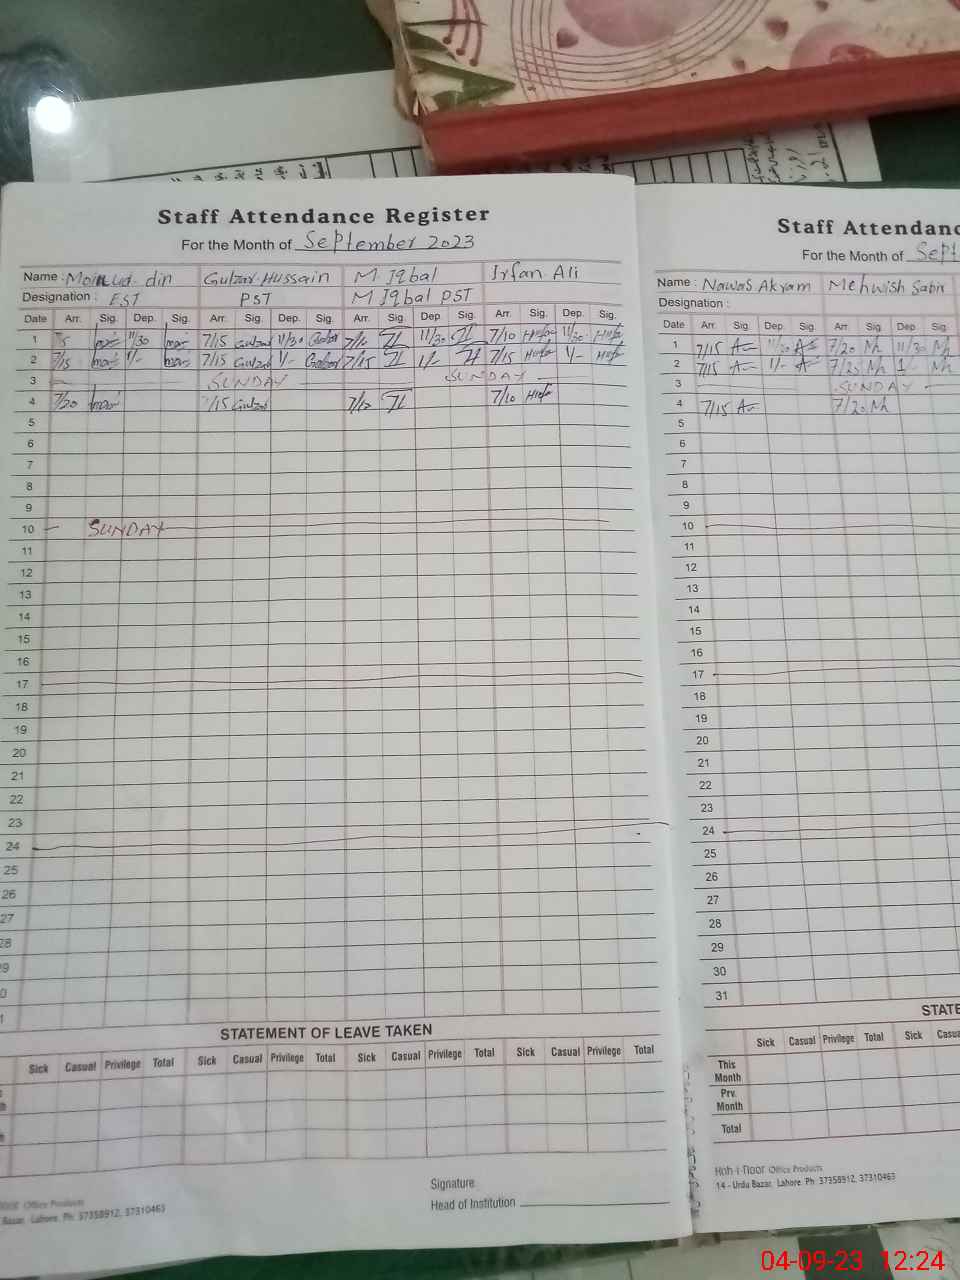 Staff Attendance Register
For the Month of September 2023
Name : Moin ud. din Gulzar Hussain M Iqbal Irfan Ali
Designation : EST PST M Iqbal PST
Date Arr. Sig. Dep. Sig. Arr. Sig. Dep. Sig. Arr. Sig. Dep. Sig. Arr. Sig. Dep. Sig.
1 11/30 7/15 Gulzar 11/30 Gulzar 11/30 7/10 11/30
2 7/15 1/- 7/15 Gulzar 1/- Gulzar 7/15 1/- 7/15 1/-
3 SUNDAY SUNDAY
4 7/20 7/15 Gulzar 7/10 7/10
5
6
7
8
9
10 SUNDAY
11
12
13
14
15
16
17
18
19
20
21
22
23
24
25
26
27
28
STATEMENT OF LEAVE TAKEN
Sick Casual Privilege Total Sick Casual Privilege Total Sick Casual Privilege Total Sick Casual Privilege Total
Signature
Head of Institution
Office Products
Bazar, Lahore Ph: 37358912, 37310463
Staff Attendanc
For the Month of Sept
Name : Nawas Akram Mehwish Sabir
Designation :
Date Arr. Sig. Dep. Sig. Arr. Sig. Dep. Sig.
1 7/15 11/30 7/20 Mh 11/30 Mh
2 7/15 1/- 7/20 Mh 1/- Mh
3 SUNDAY
4 7/15 7/20 Mh
5
6
7
8
9
10
11
12
13
14
15
16
17
18
19
20
21
22
23
24
25
26
27
28
29
30
31
STATE
Sick Casual Privilege Total Sick Casua
This Month
Prv. Month
Total
Koh-i-noor Office Products
14 - Urdu Bazar, Lahore Ph: 37358912, 37310463
04-09-23 12:24